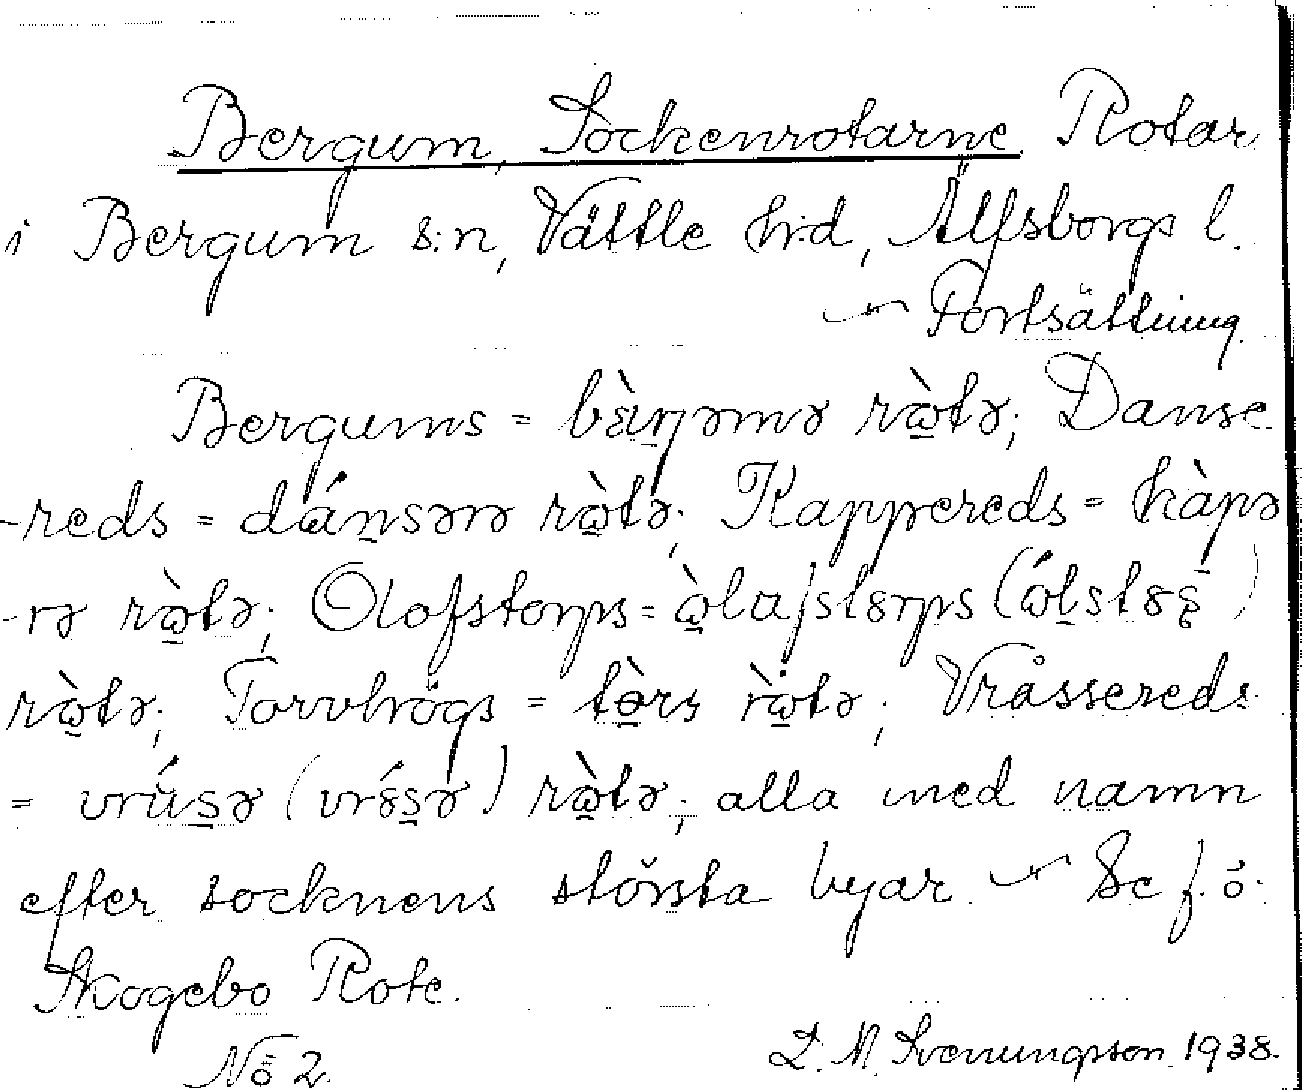 Bergum, Sockenrotarne. Rotar
i Bergum s:n, Vättle h:d, Älfsborgs l.
~ Fortsättning.
Bergums = bὲ̀ŋəmə rὼtə; Danse-
-reds = dánsərə rὼtə; Kappereds = kàpə
-rə rὼtə; Olofstorps = ὼlafstɤrps (ɷ́lstɤȩ)
rὼtə; Torvhögs = tɵ̀rs rὼtə; Vråssereds
= vrúsə (vrɤ́sə) rὼtə; alla med namn
efter socknens största byar. ~ Se f. ö.
Skogebo Rote.
No 2. L. M. Svenungsson 1938.